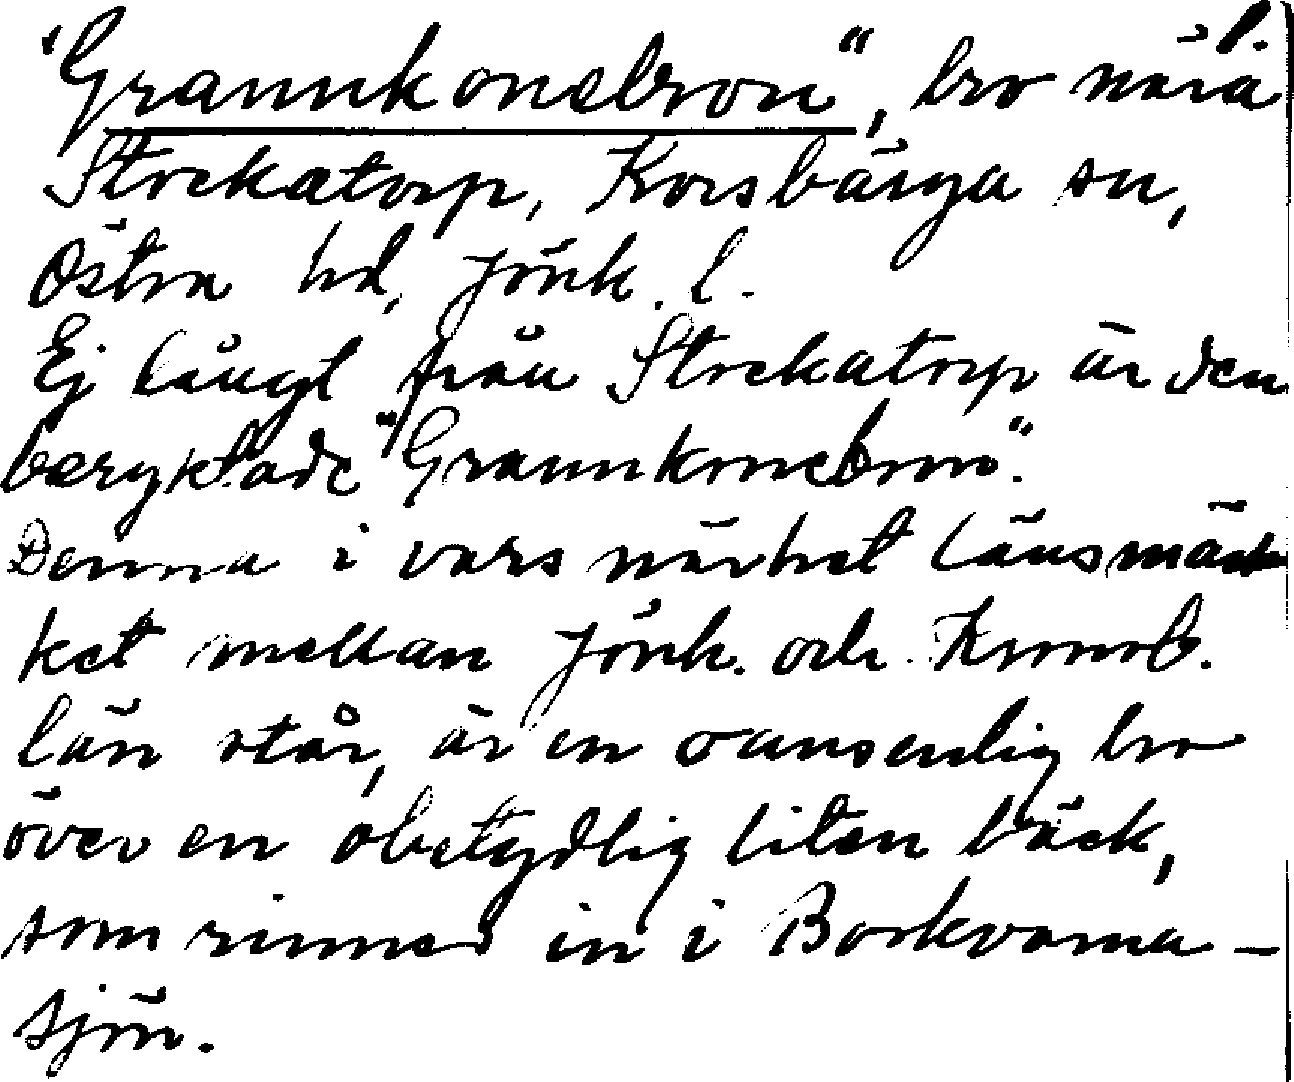 "Grannkonebron", bro nära
Stockatorp, Korsbärga sn,
Östra hd, Jönk. l.
Ej långt från Stockatorp är den
beryktade "Grannkonebron".
Denna i vars närhet länsmär
ket mellan Jönk. och Kronob.
län står, är en oansenlig bro
över en obetydlig liten bäck,
som rinner in i Borkvarna-
sjön.